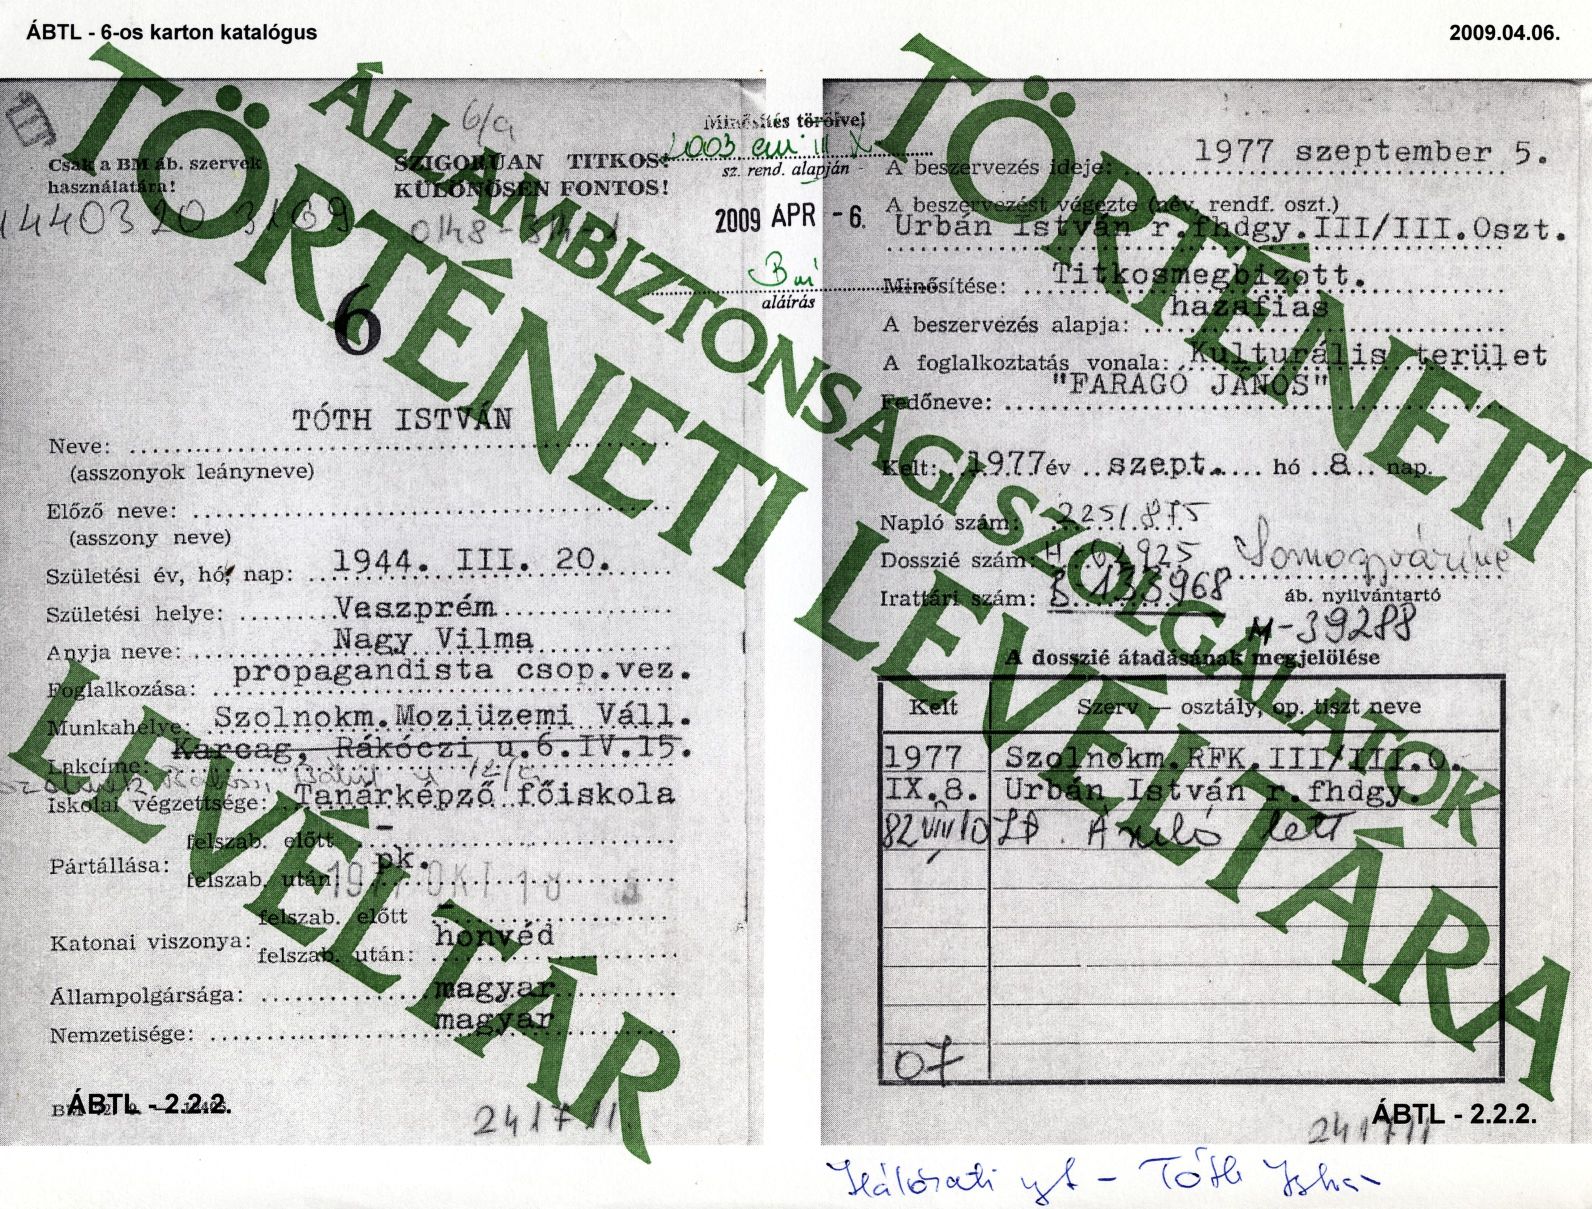 ÁBTL - 6-os karton katalógus
2009.04.06.
TÖRTÉNETI LEVÉLTÁR
ÁLLAMBIZTONSÁGI SZOLGÁLATOK
TÖRTÉNETI LEVÉLTÁRA
6/a
Csak a BM áb. szervek
használatára!
SZIGORÚAN TITKOS!
KÜLÖNÖSEN FONTOS!
Minősítés törölve!
2003
sz. rend. alapján
2009 APR - 6.
aláírás
14403203169
6
TÓTH ISTVÁN
Neve:
(asszonyok leányneve)
Előző neve:
(asszony neve)
Születési év, hó, nap: 1944. III. 20.
Születési helye: Veszprém
Anyja neve: Nagy Vilma
Foglalkozása: propagandista csop.vez.
Munkahelye: Szolnokm.Moziüzemi Váll.
Lakcíme: Karcag, Rákóczi u.6.IV.15.
Iskolai végzettsége: Tanárképző főiskola
Pártállása: felszab. előtt -
felszab. után pk.
Katonai viszonya: felszab. előtt -
felszab. után: honvéd
Állampolgársága: magyar
Nemzetisége: magyar
ÁBTL - 2.2.2.
241711
A beszervezés ideje: 1977 szeptember 5.
A beszervezést végezte (név, rendf. oszt.)
Urbán István r.fhdgy.III/III.Oszt.
Minősítése: Titkosmegbizott.
A beszervezés alapja: hazafias
A foglalkoztatás vonala: Kulturális terület
Fedőneve: "FARAGÓ JÁNOS"
Kelt: 1977 év szept. hó 8 nap.
Napló szám: 225/875
Dosszié szám: Somogyváriné
Irattári szám: 133968
áb. nyilvántartó
M-39288
A dosszié átadásának megjelölése
Kelt Szerv — osztály, op. tiszt neve
1977 Szolnokm.RFK.III/III.O.
IX.8. Urbán István r.fhdgy.
82 VIII/10 lett
07
ÁBTL - 2.2.2.
241711
Hálózati - Tóth István